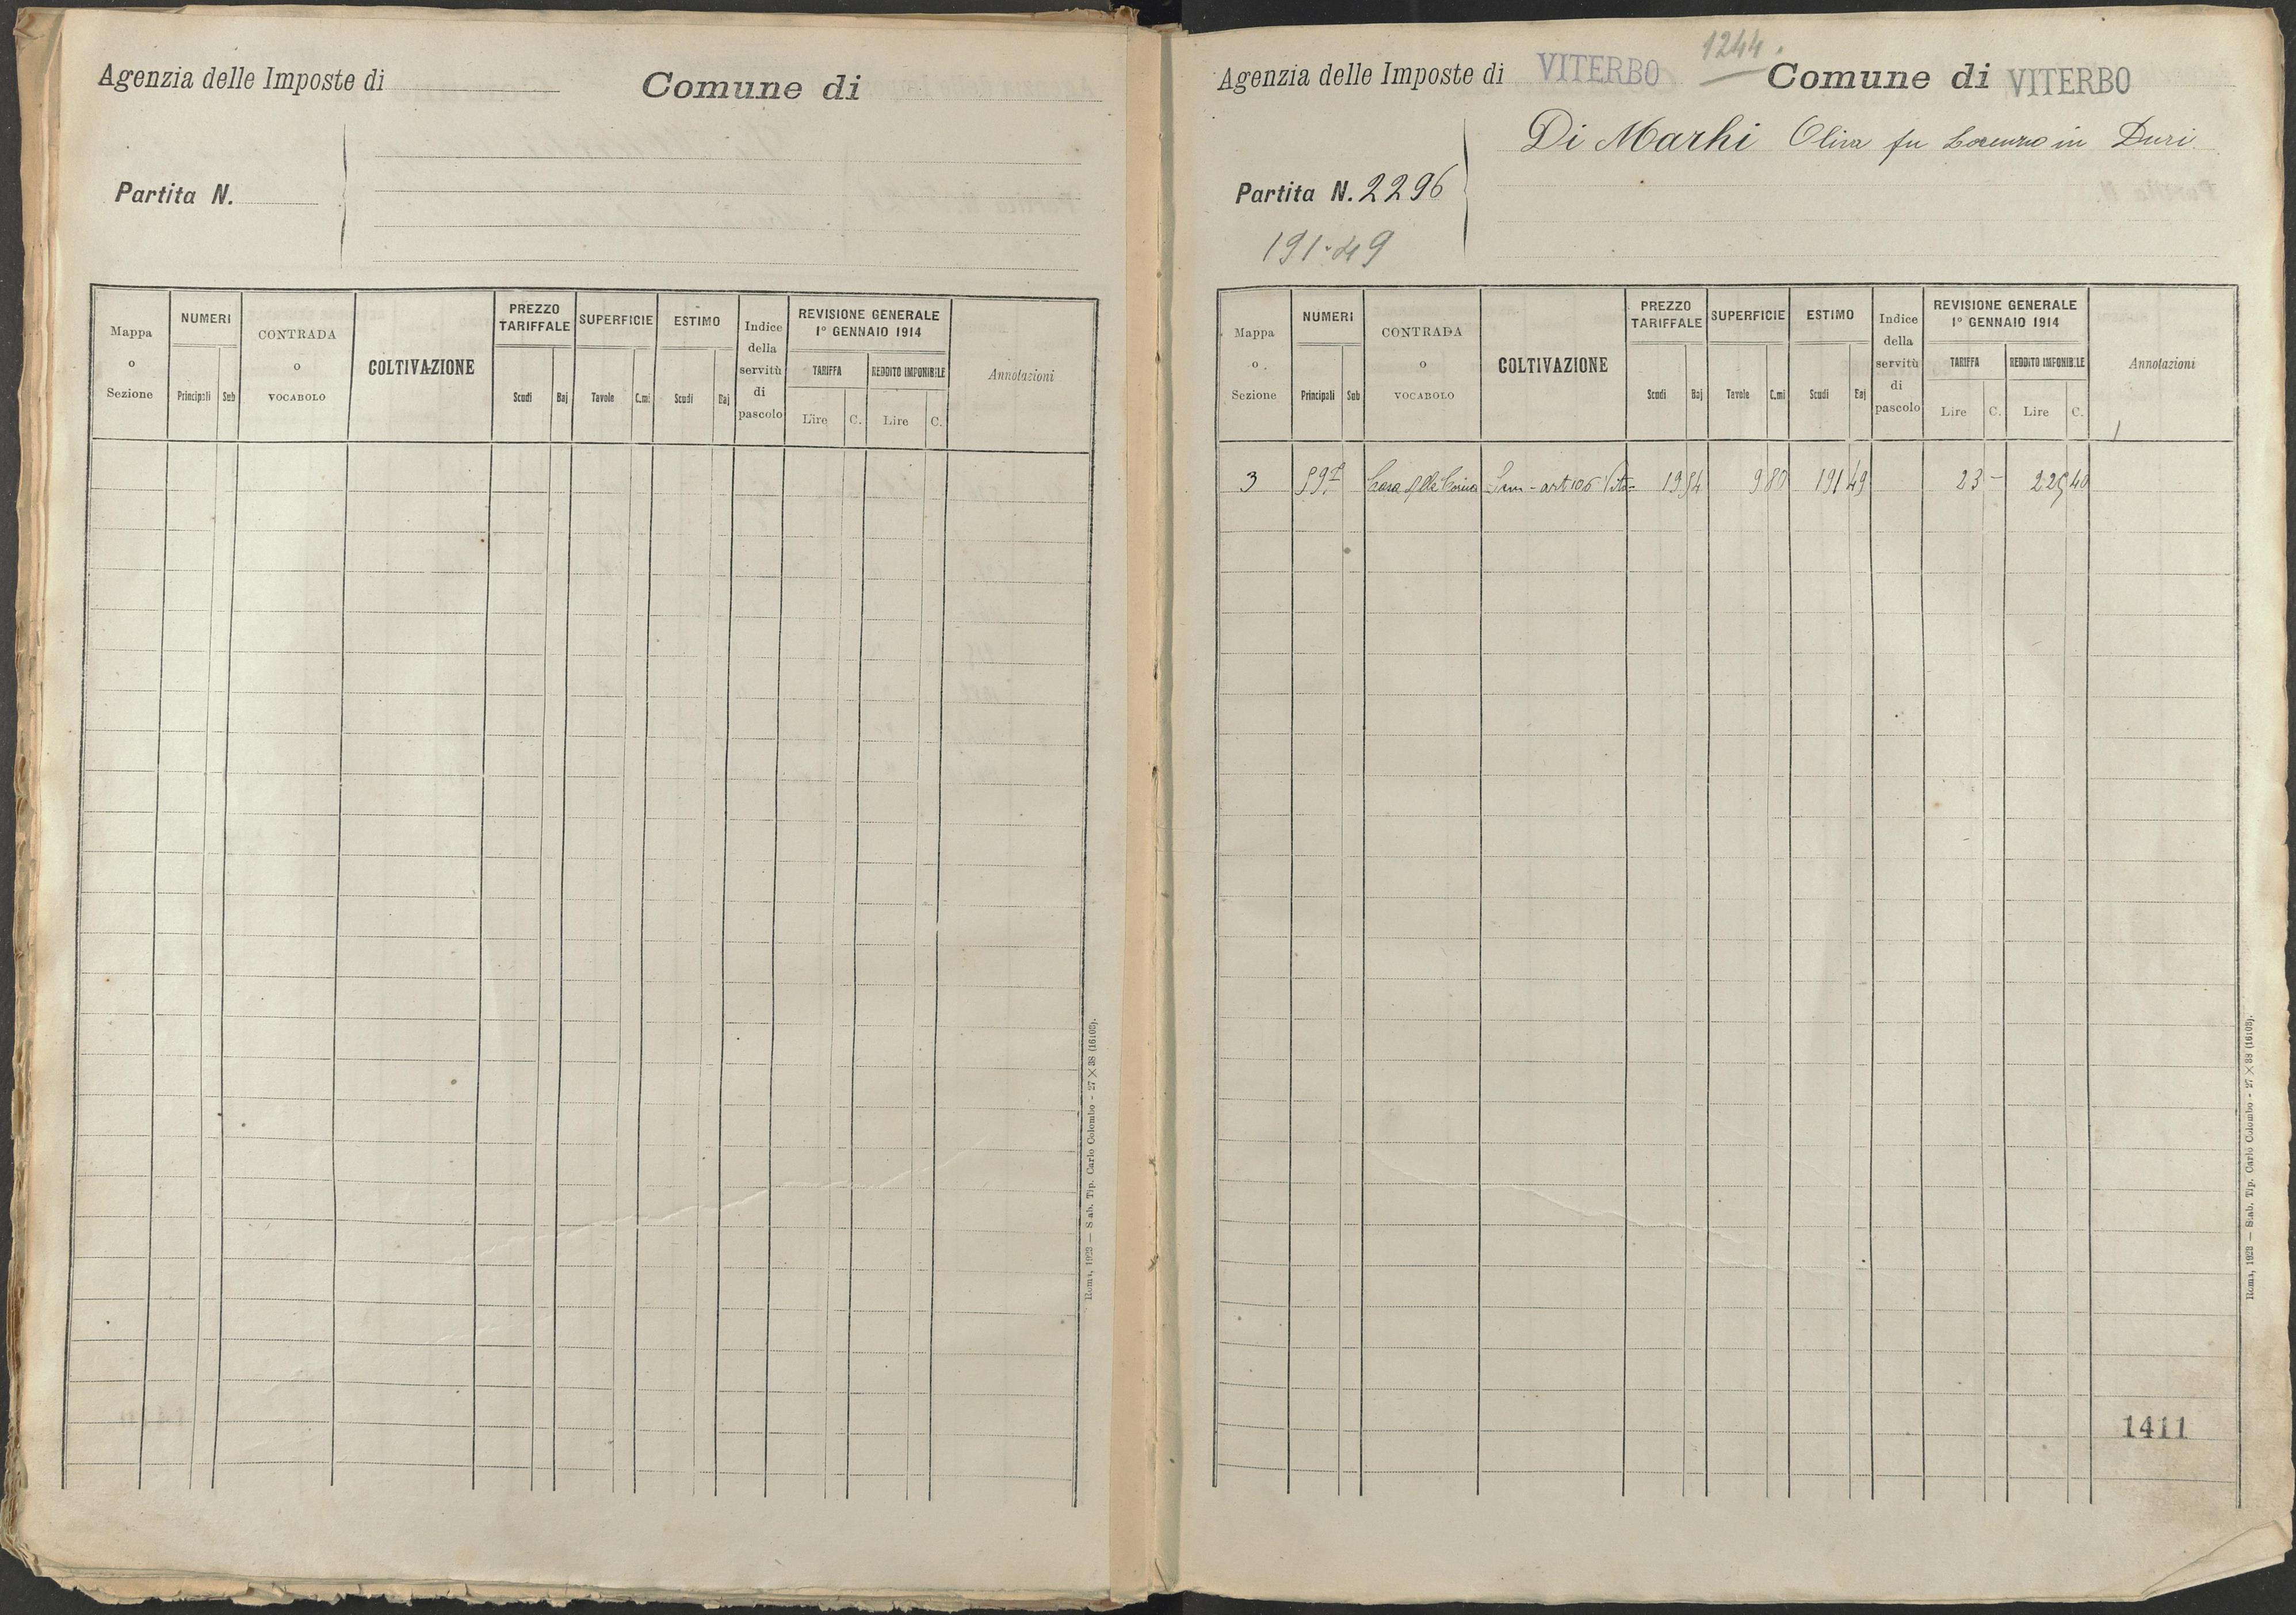 Agenzia delle Imposte di
Comune di
Partita N.
Mappa o Sezione
NUMERI
Principali Sub
CONTRADA o VOCABOLO
COLTIVAZIONE
PREZZO TARIFFALE
Scudi Baj
SUPERFICIE
Tavole C.mi
ESTIMO
Scudi Baj
Indice della servitù di pascolo
REVISIONE GENERALE
1° GENNAIO 1914
TARIFFA REDDITO IMPONIBILE
Lire C. Lire C.
Annotazioni
Roma, 1923 — Stab. Tip. Carlo Colombo - 27 × 38 (16108).
1244.
Agenzia delle Imposte di VITERBO Comune di VITERBO
Di Marhi Oliva fu Lorenzo in Duri
Partita N. 2296
191.49
Mappa o Sezione
NUMERI
Principali Sub
CONTRADA o VOCABOLO
COLTIVAZIONE
PREZZO TARIFFALE
Scudi Baj
SUPERFICIE
Tavole C.mi
ESTIMO
Scudi Baj
Indice della servitù di pascolo
REVISIONE GENERALE
1° GENNAIO 1914
TARIFFA REDDITO IMPONIBILE
Lire C. Lire C.
Annotazioni
3 art 105 19 54 9 80 191 49 23 — 225 40
1411
Roma, 1923 — Stab. Tip. Carlo Colombo - 27 × 38 (16108).